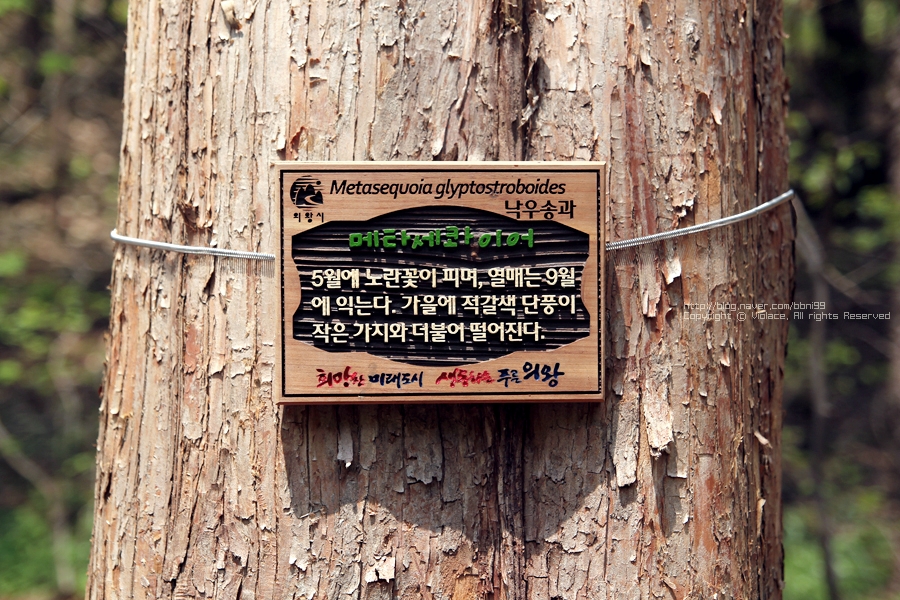 Metasequoia glyptostroboides
의왕시
낙우송과
메타세콰이어
5월에 노란꽃이 피며, 열매는 9월
에 익는다. 가을에 적갈색 단풍이
작은 가지와 더불어 떨어진다.
희망찬 미래도시 생동하는 푸른 의왕
http://blog.naver.com/bbni99
Copyright © Violace, All rights Reserved